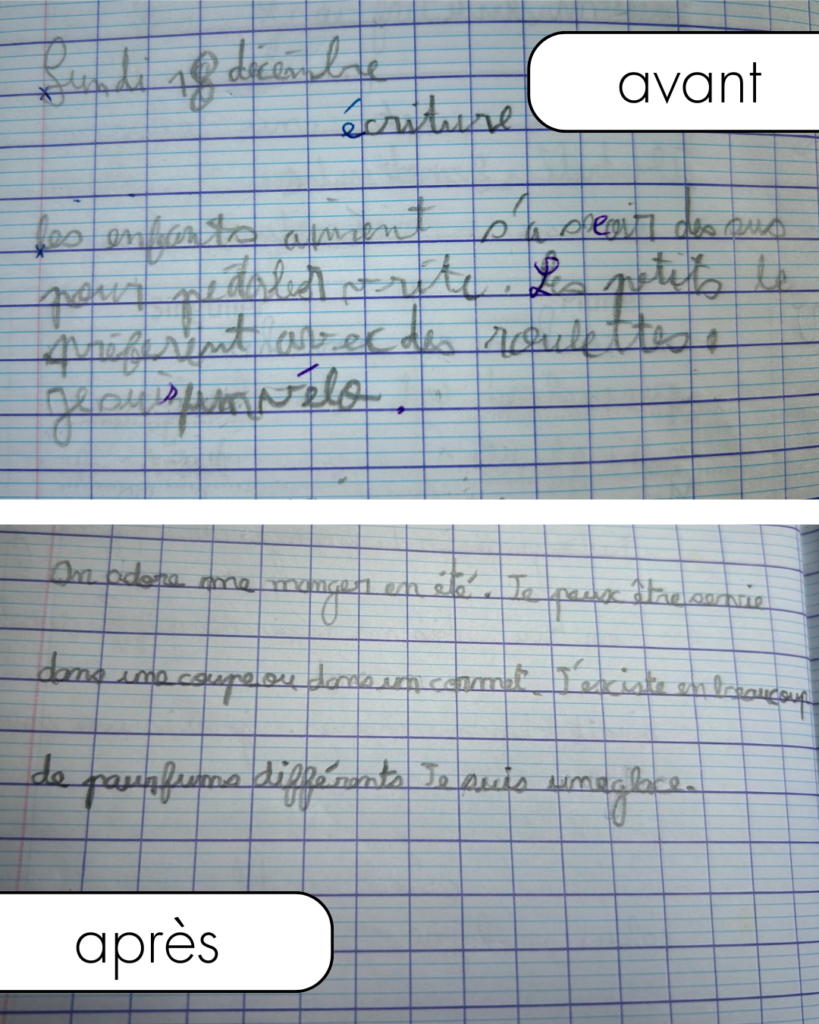 Lundi 18 décembre
avant
écriture
les enfants aiment s'a seoir des sus
pour pédaler vite. Les petits le
préfèrent avec des roulettes.
je suis un vélo.
On adore me manger en été. Je peux être servie
dans une coupe ou dans un cornet. J'existe en beaucoup
de paurfums différents Je suis une glace.
après